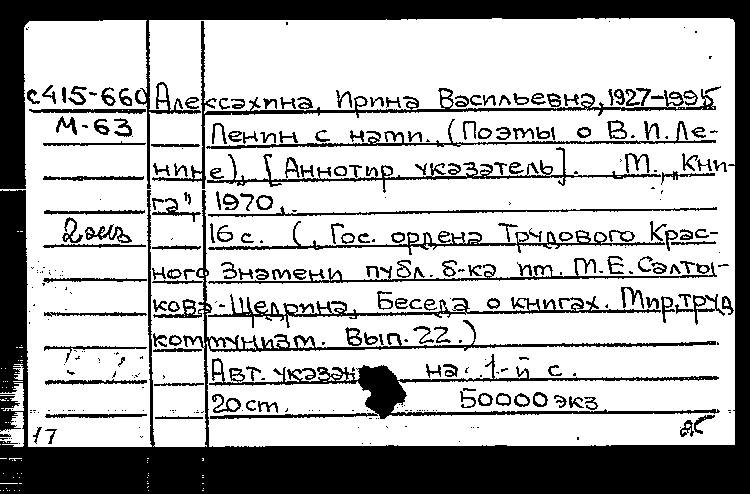 с415-660 Алексахина, Ирина Васильевна, 1927-1995
М-63 Ленин с нами. (Поэты о В.И.Ле-
нине). [Аннотир. указатель]. М., „Кни-
га", 1970.
2 экз 16 с. (Гос. ордена Трудового Крас-
ного Знамени публ. б-ка им. М.Е.Салты-
кова-Щедрина, Беседа о книгах. Мир, труд
коммунизм. Вып. 22.)
Авт. указан на 1-й с.
20 см. 50000 экз.
17